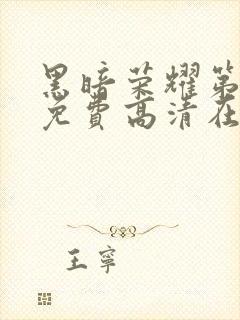 黑暗荣耀第
免费高清在
王寧